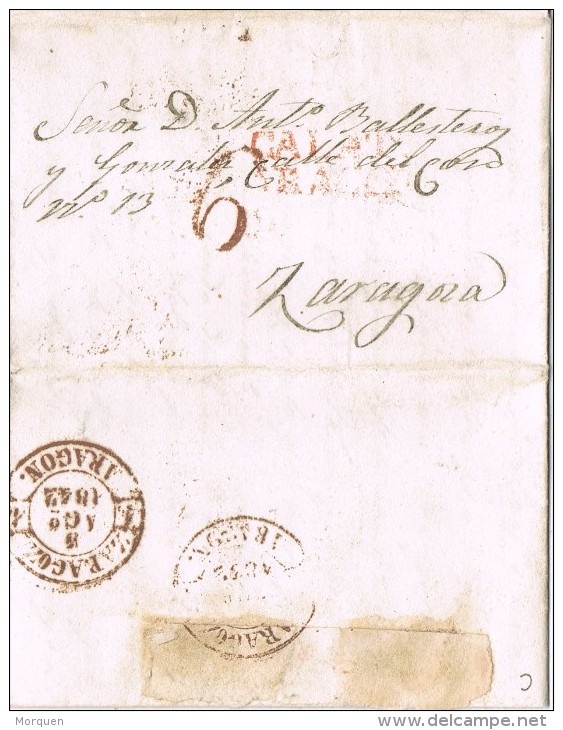 Señor D Antº. Ballesteros
y Gonzalo calle del Coso
nº. 13
6
Zaragoza
ZARAGOZA
8
AGº
1842
ARAGON.
Morquen
www.delcampe.net